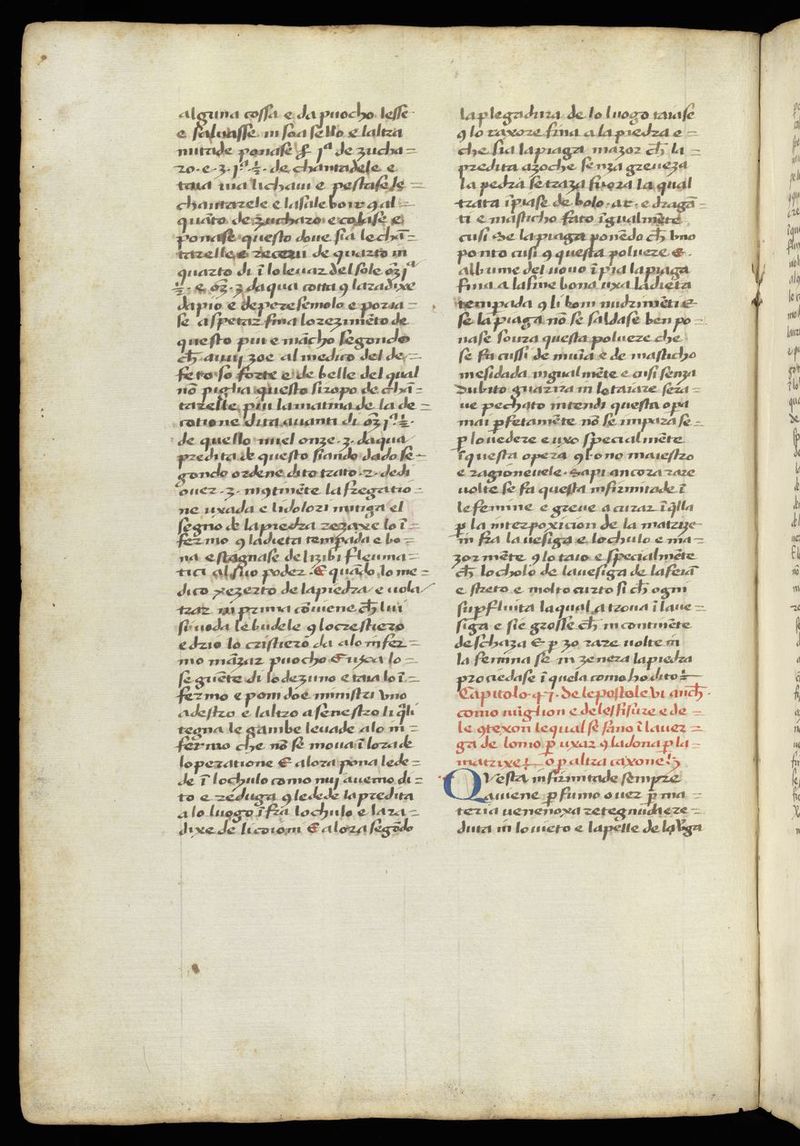 alguna cossa e da puocho lesse
e saluasse in soa sello e laltra
mitade ponase ꝑ jª de zucha=
ro · e · ʒ · jª ½ · de chantarele e
taia nia lichani e pestasele =
chantarele e lassale boir ꝯ al =
quãto de zucharo e colase e
ponase questo doue sia le chã=
tarelle e receui de quarto in
quarto di ĩ lo leuar del sole oʒ jª
½ · e oʒ · ʒ da qua cotta ꝯ la radixe
dapio e de peresemolo e poria =
se aspetar fina lo rezimẽto de
questo piu e mãcho segondo
ch̃ auuj zoe al medico del de =
feto so forte e de belle del qual
nõ piglia questo siropo de chã =
tarelle piu la matina de la de =
cotione dita auanti di oʒ jª ½ ·
de quello miel onze · ʒ · daqua
predita de questo siando dado se =
gondo ordene dito trato · 2 · de di
ouer · ʒ · niẽtmẽte la fregatio =
ne uxada e li dolori mitiga el
segno de la piedra rezaxe lo ĩ =
fermo ꝯ la dieta temprada e bo =
na e stagnase de li zibi fleuma =
tici al suo poder · E quãdo lo me =
dico xe zerto de la piedra e uola
trar in prima cõuiene ch̃ lui
si uoda le budele ꝯ lo crestiero
e drio lo cristiero da a lo infer =
mo mãzar puocho E usca lo =
seguẽte di lo dezuno e taia lo ĩ =
fermo e poni doe ministri vno
a destro e laltro a senestro li q̃li
tegna le gambe leuade a lo in =
fermo che nõ se moua ĩ lora de
loperatione e alora pona le de =
de ĩ lo chulo como nuj auemo di =
to e reduga ꝯ le dede la predita
a lo luogo ĩfra lo chulo e la ra =
dixe de li coioni E alora segõdo
la plegadura de lo luogo taiase
ꝯ lo raxore fina a la piedra e =
che sia la piaga mazor ch̃ la =
predita azoche senza greueza
la pedra se traza fuora la qual
trata ĩpiase de bolo · ar · e dragã =
ti e mastichio fato ĩgualmẽte
cusi Se la piaga ponẽdo ch̃ vno
ponto cusi ꝯ questa poluere E ·
albume del uouo ĩpia la piaga
fina a la fine bona uxa la dieta
temprada ꝯ li boni nudrimẽti E
se la piaga nõ se saldase ben po =
nase soura questa poluere che
se fa cussi de mumia e de mastichio
mesidada ingualmẽte e cusi senza
dubito guarira in lo taiare seza =
ue pechato intendi questa opa
mai ꝑfetamẽte nõ se impara se =
ꝑ lo uedere e uxo specialmẽte
ĩ questa opera ꝯ bono maiestro
e ragioneuele · Sapi ancora rare
uolte se fa questa infirmitade ĩ
le femine e greue a curar ĩ q̃lla
ꝑ la interpoxicion de la matrize
in fra la uesiga e lo chulo e ma =
zormẽte ꝯ lo taio e specialmẽte
ch̃ lo cholo de la uesiga de la feĩa
e streto e molto curto si ch̃ ogni
superfluita la qual atroua ĩ laue =
siga e sie grosse ch̃ in continẽte
deschaza E ꝑ zo rare uolte in
la femina se inzenera la piedra
prociedase ĩ quela como ho dito
Capitolo · ꝗ · j · de le postole vi anch̃
como miglion e de le sfisure e de =
le ꝯtexon le qual se fano ĩ la uer =
ga de lomo ꝑ uxar ꝯ la dona ꝑ la =
matrixe · o ꝑ altra caxone
Questa infirmitade sempre
auiene ꝑ fumo ouer ꝑ ma =
teria uenenoxa retegnudi e re =
duta in lo uieto e la pelle de la vga